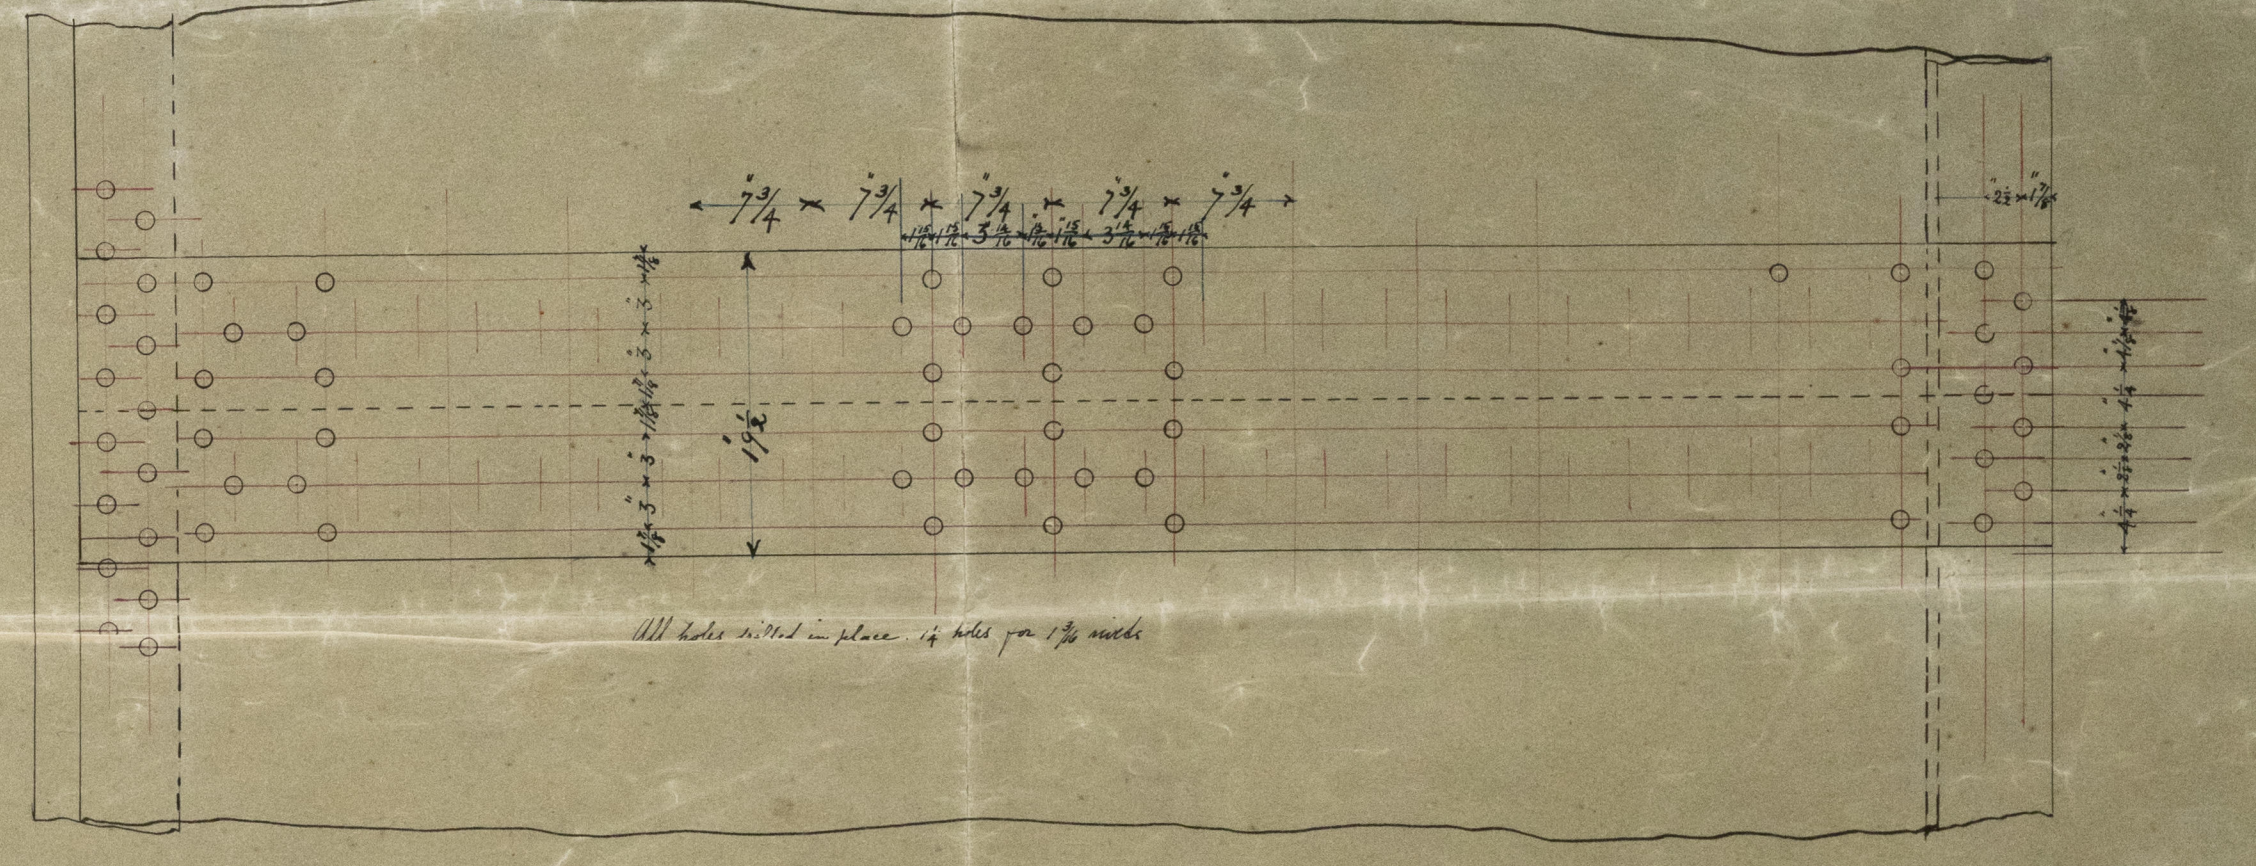 7 3/4" × 7 3/4" × 7 3/4" × 7 3/4" × 7 3/4"
1 15/16 1 15/16 3 14/16 1 15/16 1 15/16 3 14/16 1 15/16 1 15/16
2 1/2" × 1 7/8"
3" × 3"
19 1/2"
3" × 3"
4 1/4"
4 1/4" × 2 1/8"
All holes drilled in place. 1 1/4 holes for 1 3/16 rivets